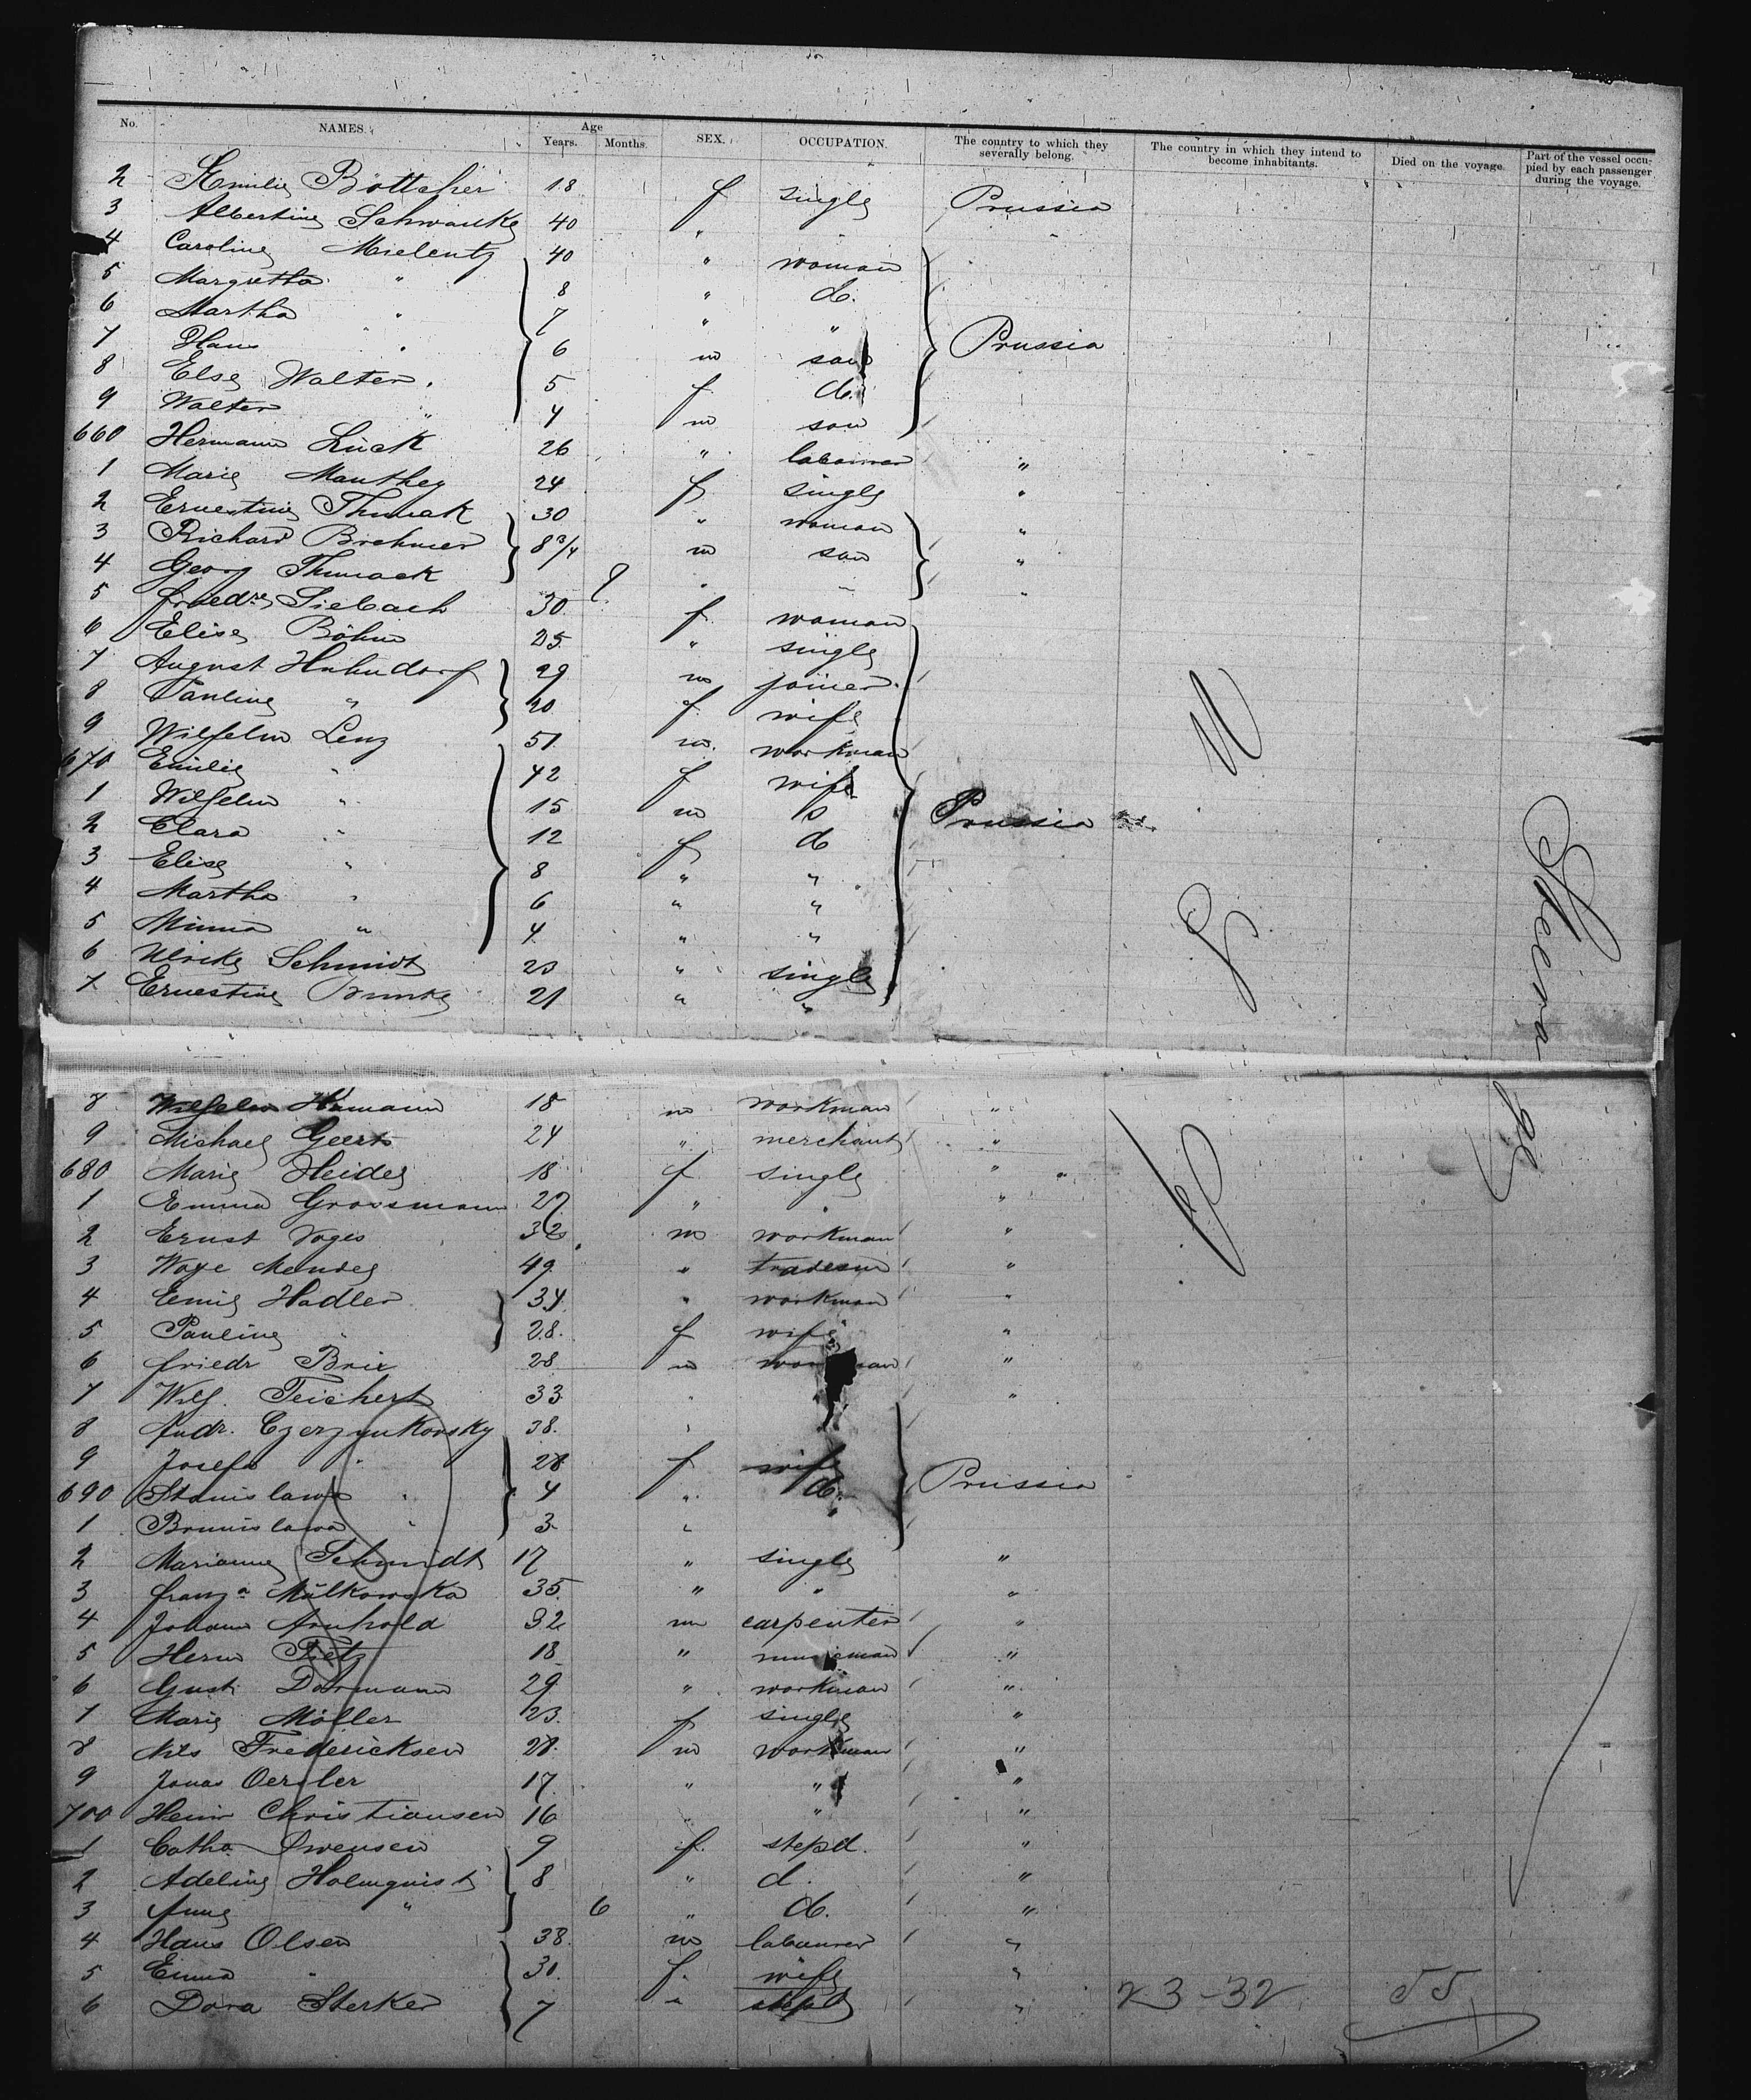 No. NAMES. Age Years. Months. SEX. OCCUPATION. The country to which they severally belong. The country in which they intend to become inhabitants. Died on the voyage. Part of the vessel occupied by each passenger during the voyage.
2 Emilie Böttcher 18 f single Prussia
3 Albertine Schwanke 40 "
4 Caroline Mielentz 40 " woman
5 Margretha " 8 " d.
6 Martha " 7 " "
7 Hans " 6 m son Prussia
8 Else Walter. 5 f d.
9 Walter " 4 m son
660 Hermann Lück 26 " labourer "
1 Marie Manthey 24 f single "
2 Ernestine 30 " woman "
3 Richard Brehmer 8 3/4 m son "
4 Georg "
5 Siebach 30 f woman
6 Elise Böhm 25 " single
7 August Hahndorf 29 m joiner
8 Pauline " 20 f wife
9 Wilhelm Lenz 51 m. workman
670 Emilie " 42 f wife
1 Wilhelm " 15 m s Prussia
2 Clara " 12 f d
3 Elise " 8 " "
4 Martha " 6 " "
5 Minna " 4 " "
6 Ulrike Schmidt " single
7 Ernestine 21 " "
8 Wilhelm Hamann 18 m workman "
9 Michael Geerts 24 " merchant "
680 Marie 18 f single "
1 Emma Grossmann 27 " "
2 Ernst Voges 32 m workman "
3 49 "
4 Emil Hadler 34 " workman "
5 Pauline " 28. f wife "
6 Friedr Brix 28 m workman "
7 Wilh. Teichert 33 " "
8 Andr. 38.
9 Josefa " 28 f wife
690 Stanislawa " 4 " d. Prussia
1 Bronislawa " 3 "
2 Marianne Schmidt 17 " single "
3 35. " " "
4 Johann Arnhold 32 m carpenter "
5 Herm Tietz 18 " "
6 Gust. 29 " workman "
7 Marie Möller 23. f single "
8 Nils Fredericksen 28. m workman "
9 Jonas 17. " " "
700 Heinr Christiansen 16 " " "
1 Catha Swensen 9 f. stepd. "
2 Adeline Holmquist 8 " d. "
3 Anna " 6 " d. "
4 Hans Olsen 38. m labourer "
5 Emma " 30. f. wife "
6 Dora Sterker 7 " stepd " 23-32 55